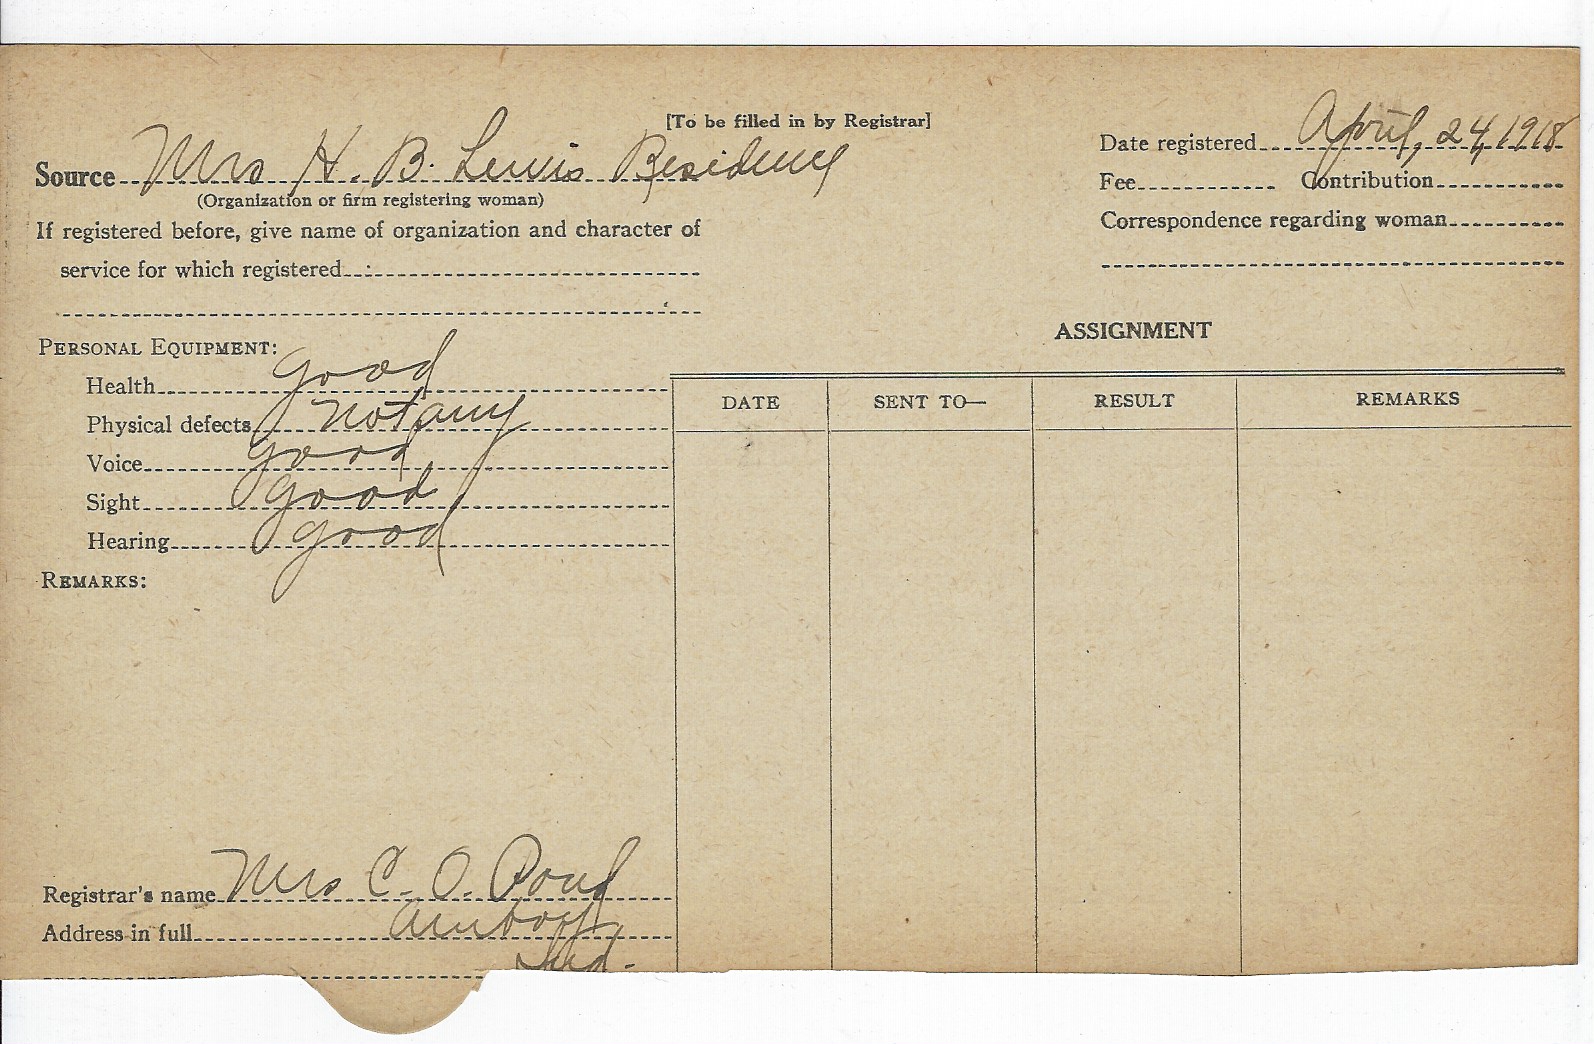 [To be filled in by Registrar]
Source Mrs H. B. Lewis Residency
(Organization or firm registering woman)
If registered before, give name of organization and character of
service for which registered
Date registered April, 24, 1918
Fee Contribution
Correspondence regarding woman
PERSONAL EQUIPMENT:
Health good
Physical defects not any
Voice good
Sight good
Hearing good
REMARKS:
ASSIGNMENT
DATE SENT TO— RESULT REMARKS
Registrar's name Mrs C. O. Pond
Address in full Amboy
Ind.